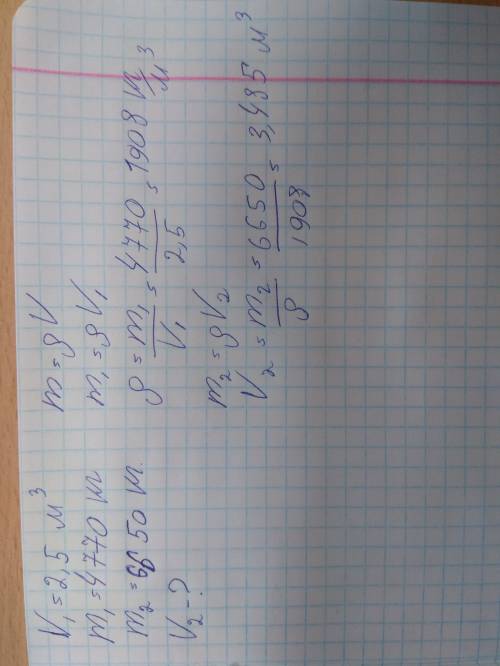 V₁ = 2,5 м³
m₁ = 4770 кг
m₂ = 6650 кг
V₂ - ?
m = ρV
m₁ = ρV₁
ρ = m₁/V₁ = 4770/2,5 = 1908 кг/м³
m₂ = ρV₂
V₂ = m₂/ρ = 6650/1908 = 3,485 м³